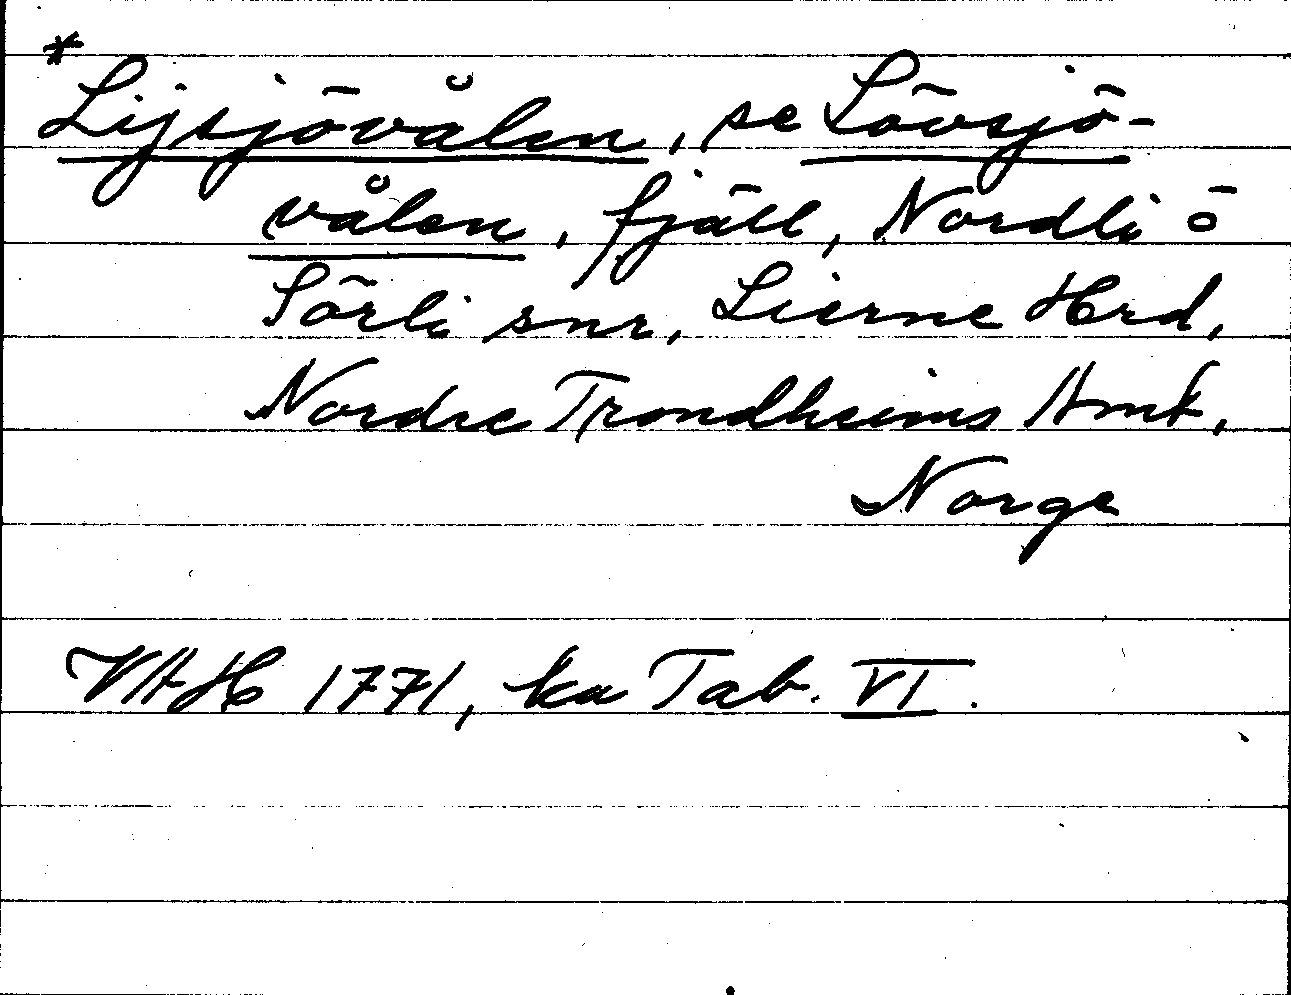 *Lijsjövålen, se Lövsjö-
vålen, fjäll, Nordli o
Sörli snr, Lierne Hrd,
Nordre Trondheims Amt,
Norge
VAH 1771, ka Tab. VI.